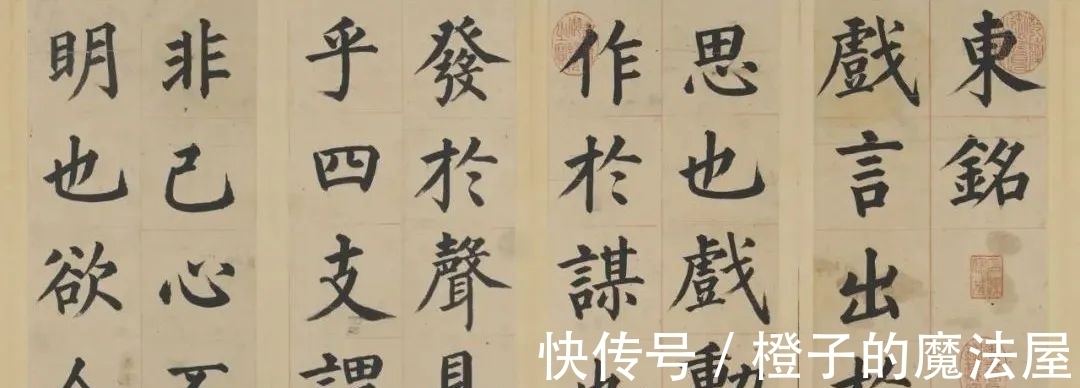 東銘
戲言出於
思也戲動
作於謀也
發於聲見
乎四支謂
非己心不
明也欲人
快传号 / 橙子的魔法屋